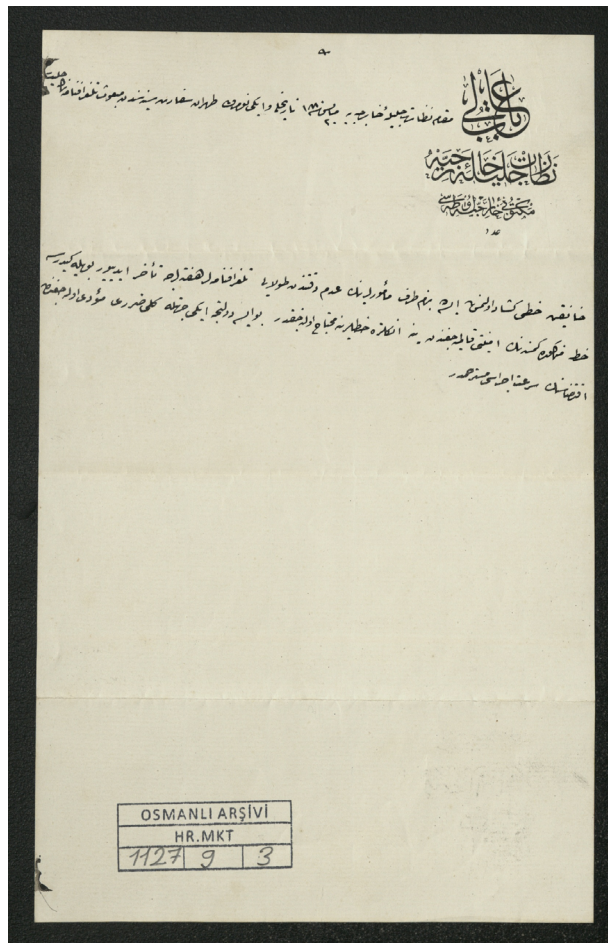 باب عالی
نظارت جلیلهٔ خارجیه
مكتوبی خارجیه
عدد
مقام نظارت جلیلهٔ خارجیه یه مارس سنه تاریخلی و ایكی نومرولی طهران سفارت سنیه سندن مبعوث تلغرافنامه
خانقین خطی كشاد اولنمش ایسه ده بزم طرف مأمورلرینك عدم دقتندن طولایی تلغرافنامه لر هفته لرجه تأخر ایدییور بویله كیدرسه
خط مذكوره كیمسه نك امنیتی قالمیه جغندن ینه انكلتره خطلرینه محتاج اوله جغز بو ایسه دولتجه ایكی جهتله كلی ضرری مؤدی اوله جغندن
اقتضاسنك سرعت اجراسی مسترحمدر
OSMANLI ARŞİVİ
HR.MKT
1127 9 3